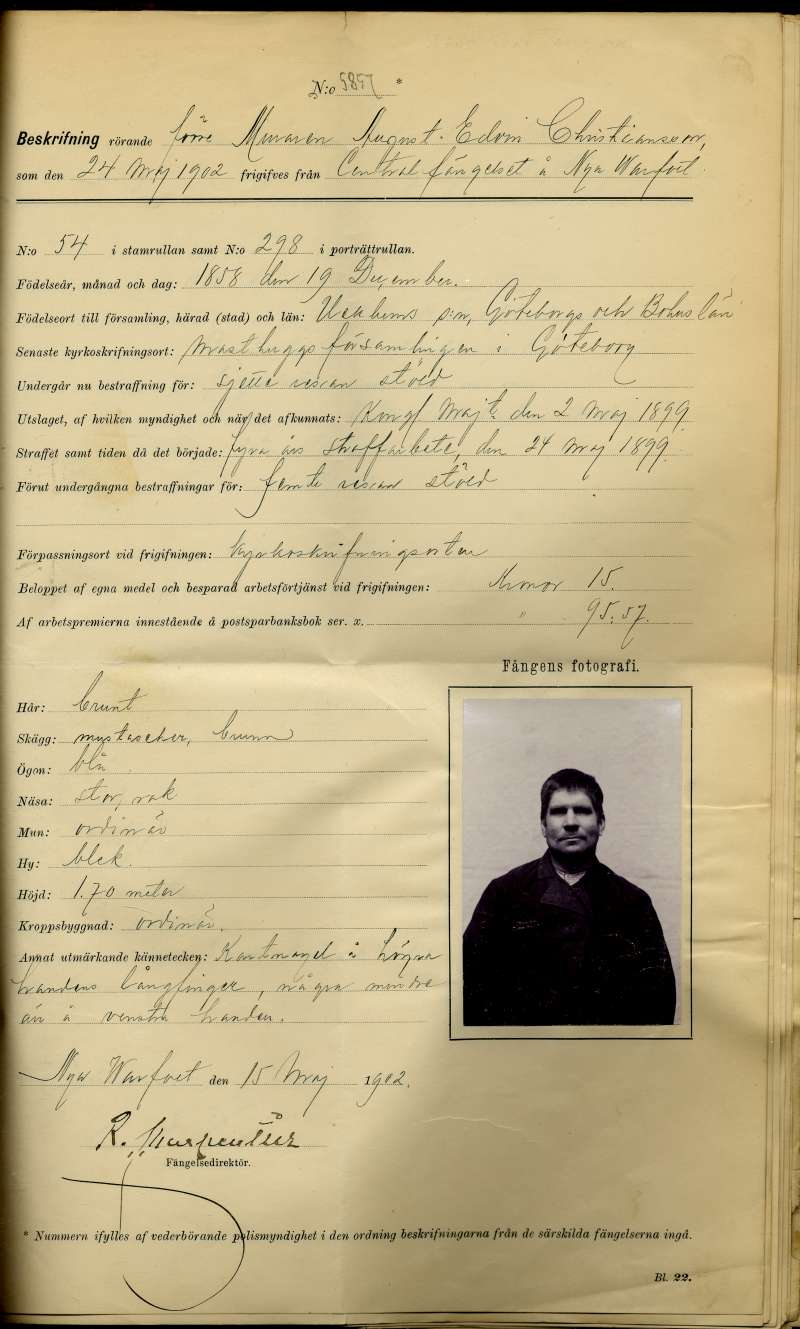 N:o 5857 *
Beskrifning rörande förre Muraren August Edvin Christiansson,
som den 24 Maj 1902 frigifves från Centralfängelset å Nya Warfvet.
N:o 54 i stamrullan samt N:o 298 i porträttrullan.
Födelseår, månad och dag: 1858 den 19 December.
Födelseort till församling, härad (stad) och län: s:n, Göteborgs och Bohus län
Senaste kyrkoskrifningsort: Masthuggsförsamlingen i Göteborg
Undergår nu bestraffning för: sjette resan stöld
Utslaget, af hvilken myndighet och när det afkunnats: Kongl Maj:t den 2 Maj 1899
Straffet samt tiden då det började: fyra års straffarbete, den 24 Maj 1899.
Förut undergångna bestraffningar för: femte resan stöld
Förpassningsort vid frigifningen: Kyrkoskrifningsorten
Beloppet af egna medel och besparad arbetsförtjänst vid frigifningen: Kronor 15.
Af arbetspremierna innestående å postsparbanksbok ser. x. " 95.57.
Fångens fotografi.
Hår: brunt
Skägg: mustascher, bruna
Ögon: blå
Näsa: stor, rak
Mun: ordinär
Hy: blek.
Höjd: 1.70 meter
Kroppsbyggnad: ordinär.
Annat utmärkande kännetecken: å högra
handens långfinger, några mindre
ärr å venstra handen.
Nya Warfvet den 15 Maj 1902.
R.
Fängelsedirektör.
* Nummern ifylles af vederbörande polismyndighet i den ordning beskrifningarna från de särskilda fängelserna ingå.
Bl. 22.